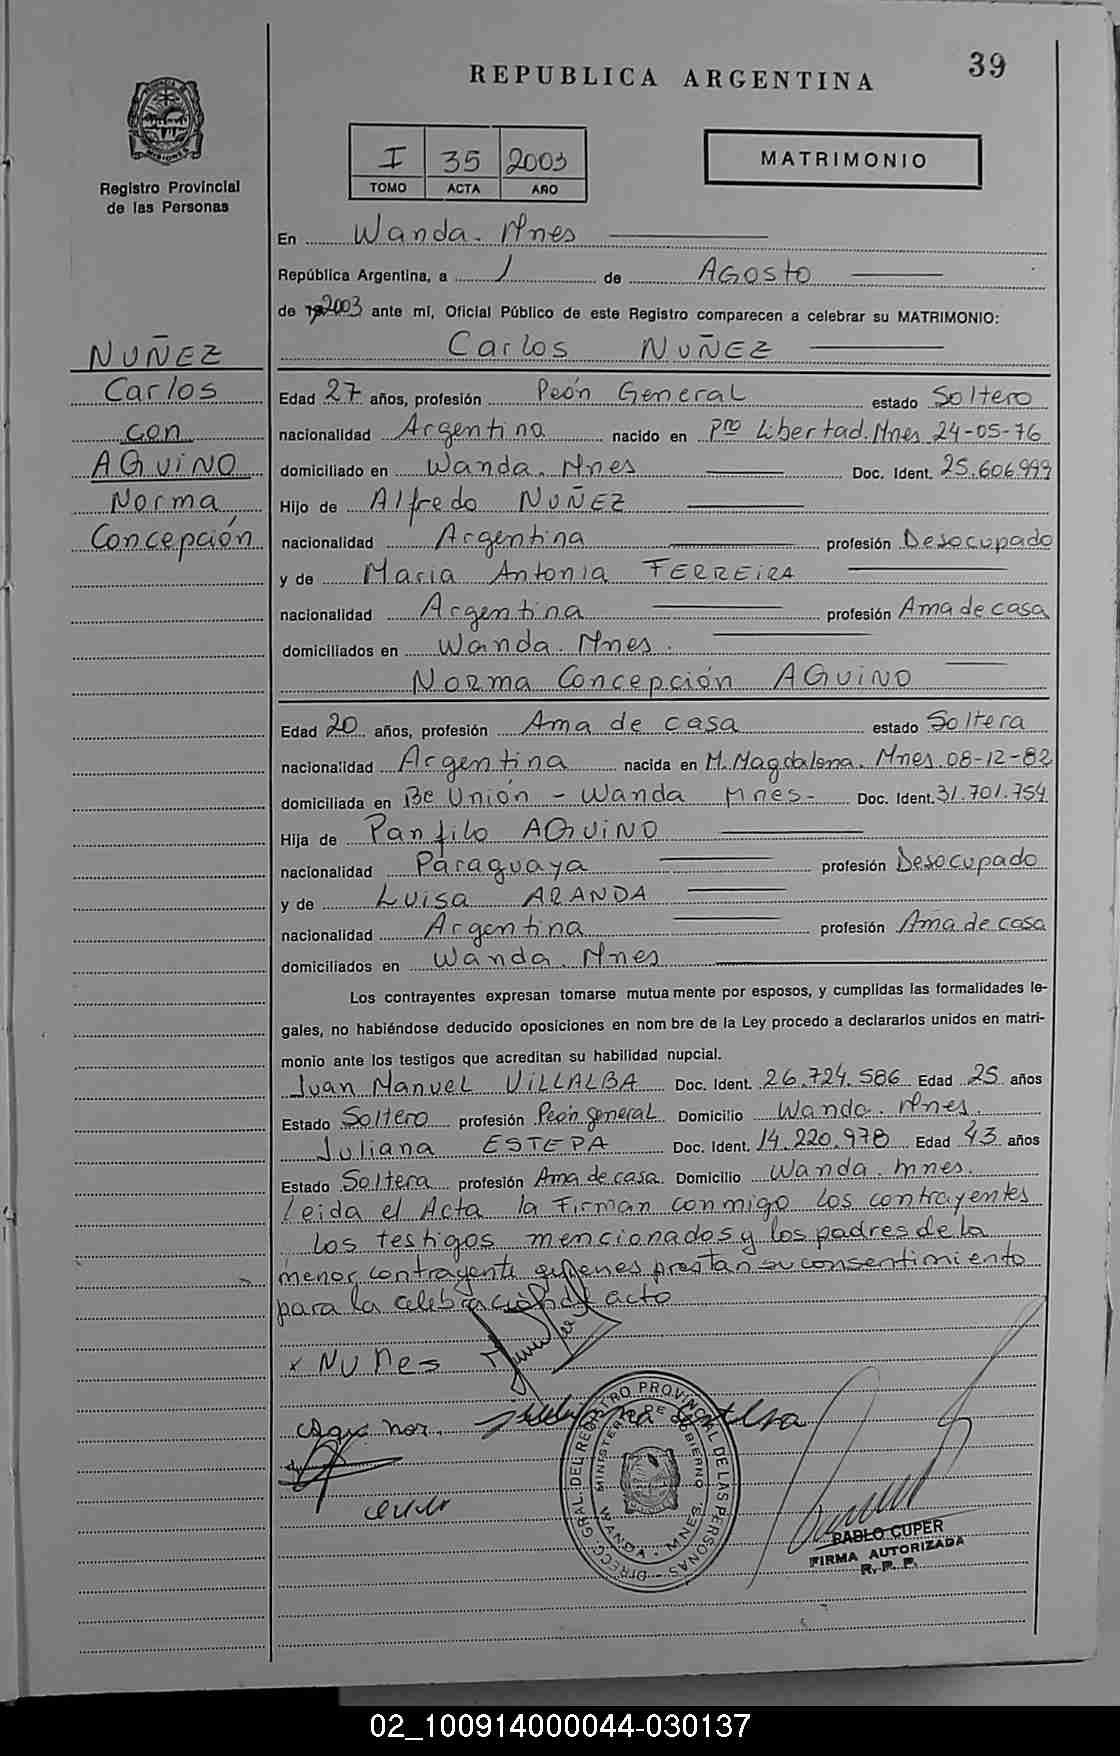 39
REPUBLICA ARGENTINA
MISIONES
Registro Provincial
de las Personas
I 35 2003
TOMO ACTA AÑO
MATRIMONIO
En Wanda. Mnes
República Argentina, a 1 de Agosto
de 2003 ante mí, Oficial Público de este Registro comparecen a celebrar su MATRIMONIO:
Carlos NUÑEZ
NUÑEZ
Carlos
con
AQUINO
Norma
Concepción
Edad 27 años, profesión Peón General estado Soltero
nacionalidad Argentina nacido en Pto Libertad. Mnes 24-05-76
domiciliado en Wanda. Mnes Doc. Ident. 25.606.999
Hijo de Alfredo NUÑEZ
nacionalidad Argentina profesión Desocupado
y de Maria Antonia FERREIRA
nacionalidad Argentina profesión Ama de casa
domiciliados en Wanda. Mnes.
Norma Concepción AQUINO
Edad 20 años, profesión Ama de casa estado Soltera
nacionalidad Argentina nacida en M. Magdalena. Mnes. 08-12-82
domiciliada en Be Unión - Wanda Mnes- Doc. Ident. 31.701.754
Hija de Panfilo AQUINO
nacionalidad Paraguaya profesión Desocupado
y de Luisa ARANDA
nacionalidad Argentina profesión Ama de casa
domiciliados en Wanda. Mnes
Los contrayentes expresan tomarse mutua mente por esposos, y cumplidas las formalidades le-
gales, no habiéndose deducido oposiciones en nom bre de la Ley procedo a declararlos unidos en matri-
monio ante los testigos que acreditan su habilidad nupcial.
Juan Manuel VILLALBA Doc. Ident. 26.724.586 Edad 25 años
Estado Soltero profesión Peón general Domicilio Wanda. Mnes.
Juliana ESTEPA Doc. Ident. 14.220.978 Edad 43 años
Estado Soltera profesión Ama de casa. Domicilio Wanda. Mnes.
Leida el Acta la Firman conmigo los contrayentes
los testigos mencionados y los padres de la
menor contrayente quienes prestan su consentimiento
para la celebración del acto
x Nuñes
DIRECC. GRAL. DEL REGISTRO PROVINCIAL DE LAS PERSONAS
MINISTERIO DE GOBIERNO
WANDA - MNES
PABLO CUPER
FIRMA AUTORIZADA
R. P. P.
02_100914000044-030137